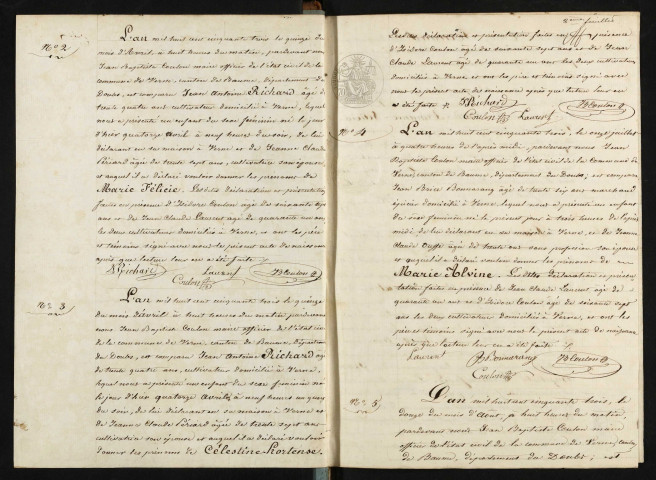 N° 2
L'an mil huit cent cinquante trois le quinze du
mois d'Avril, à huit heures du matin, pardevant nous
Jean Baptiste Coulon maire officier de l'état civil de la
commune de Verne, canton de Baume, département du
Doubs, est comparu Jean Antoine Richard âgé de
trente quatre ans cultivateur domicilié à Verne, lequel
nous a présenté un enfant du sexe féminin né le jour
d'hier quatorze Avril à neuf heures du soir, de lui
déclarant en sa maison à Verne et de Jeanne Claude
Périard âgée de trente sept ans, cultivatrice son épouse
et auquel il a déclaré vouloir donner les prénoms de
Marie Félicie. Les dites déclaration et présentation
faites en présence d'Isidore Coulon âgé de soixante sept
ans et de Jean Claude Laurent âgé de quarante un ans
les deux cultivateurs domiciliés à Verne, et ont les père
et témoins signé avec nous le présent acte de naissance
après que lecture leur en a été faite
Richard Laurent
Coulon JB Coulon
N° 3
L'an mil huit cent cinquante trois le quinze
du mois d'avril à huit heures du matin pardevant
nous Jean Baptiste Coulon maire officier de l'état civil
de la commune de Verne canton de Baume, département
du Doubs, est comparu Jean Antoine Richard âgé
de trente quatre ans, cultivateur domicilié à Verne,
lequel nous a présenté un enfant du sexe féminin né
le jour d'hier quatorze Avril à neuf heures un quart
du soir, de lui déclarant en sa maison à Verne et
de Jeanne Claude Périard âgée de trente sept ans
cultivatrice son épouse et auquel il a déclaré vouloir
donner les prénoms de Célestine hortense.
2ème feuillet
Les dites déclaration et présentation faites en présence
d'Isidore Coulon âgé de soixante sept ans et de Jean
Claude Laurent âgé de quarante un ans les deux cultivateurs
domiciliés à Verne et ont les père et témoins signé avec
nous le présent acte de naissance après que lecture leur en
a été faite Richard
Coulon Laurent JB Coulon
N° 4
L'an mil huit cent cinquante trois, le onze juillet
à quatre heures de l'après midi, pardevant nous Jean
Baptiste Coulon maire officier de l'état civil de la Commune de
Verne, canton de Baume, département du Doubs, est comparu
Jean âgé de trente six ans marchand
épicier domicilié à Verne, lequel nous a présenté un enfant
du sexe féminin né le présent jour à trois heures de l'après
midi, de lui déclarant en sa maison à Verne, et de Jeanne
Claude âgée de trente ans sans profession son épouse
et auquel il a déclaré vouloir donner les prénoms de
Marie Alvine. Les dites déclaration et présen
tation faites en présence de Jean Claude Laurent âgé de
quarante un ans et d'Isidore Coulon âgé de soixante sept
ans les deux cultivateurs domiciliés à Verne, et ont les
père et témoins signé avec nous le présent acte de naissance
après que lecture leur en a été faite
Laurent JB Coulon
Coulon
N° 5
L'an mil huit cent cinquante trois, le
douze du mois d'Août, à huit heures du matin,
pardevant nous Jean Baptiste Coulon maire
officier de l'état civil de la commune de Verne, canton
de Baume, département du Doubs, est